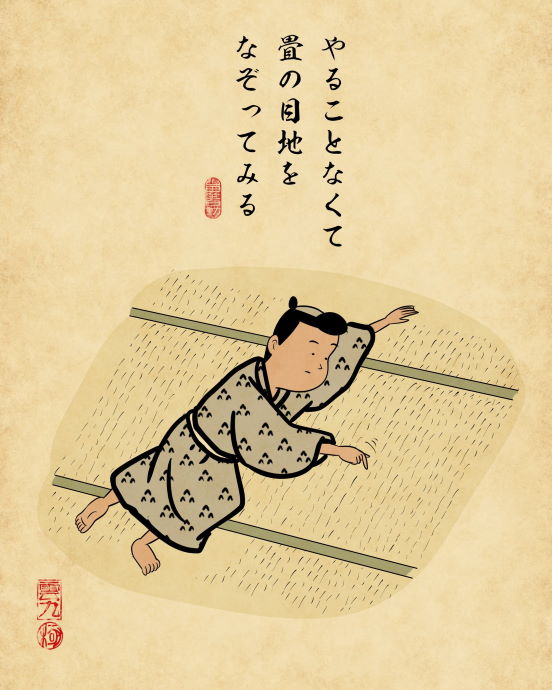 やることなくて
畳の目地を
なぞってみる